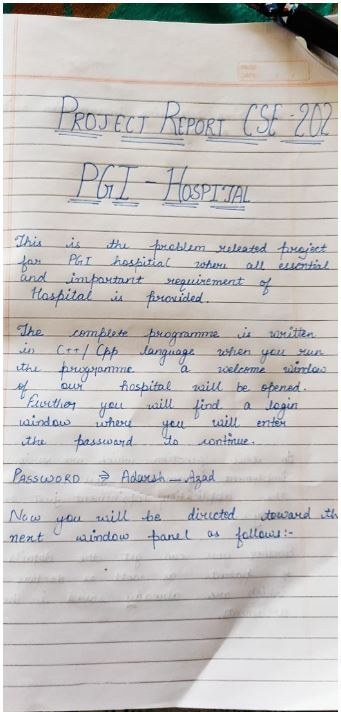 PROJECT REPORT CSE-202
PGI-HOSPITAL
This is the problem releated project
for PGI hospital where all essential
and important requirement of
Hospital is provided.
The complete programme is written
in C++/Cpp language when you run
the programme a welcome window
of our hospital will be opened.
Further you will find a login
window where you will enter
the password to continue.
PASSWORD ⇒ Adarsh_Azad
Now you will be directed toward th
next window panel as follows:-